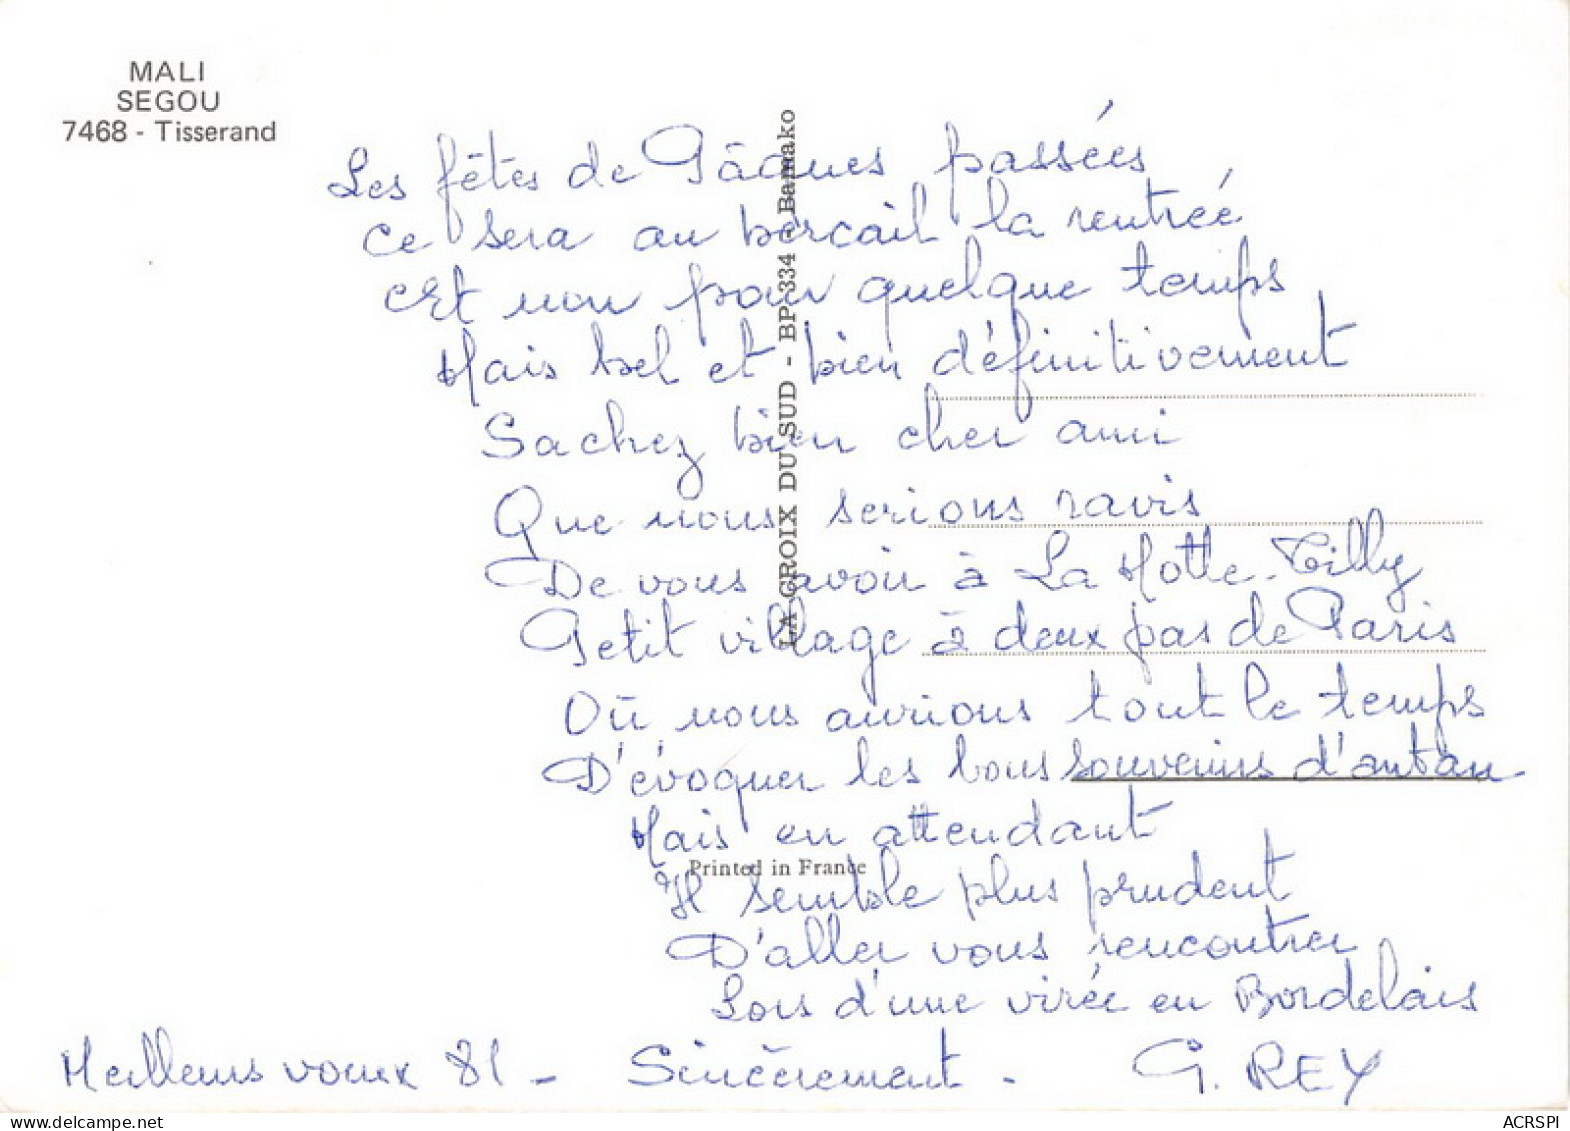 MALI
SEGOU
7468 - Tisserand
LA CROIX DU SUD - BP 334 - Bamako
Les fêtes de Pâques passées
Ce sera au bercail la rentrée
Et non pour quelque temps
Mais bel et bien définitivement
Sachez bien cher ami
Que nous serions ravis
De vous avoir à La Motte-Tilly
Petit village à deux pas de Paris
Où nous aurions tout le temps
D'évoquer les bons souvenirs d'antan
Mais en attendant
Printed in France
Il semble plus prudent
D'aller vous rencontrer
Lors d'une virée en Bordelais
Meilleurs voeux 81 - Sincèrement - G. REY
ACRSPI